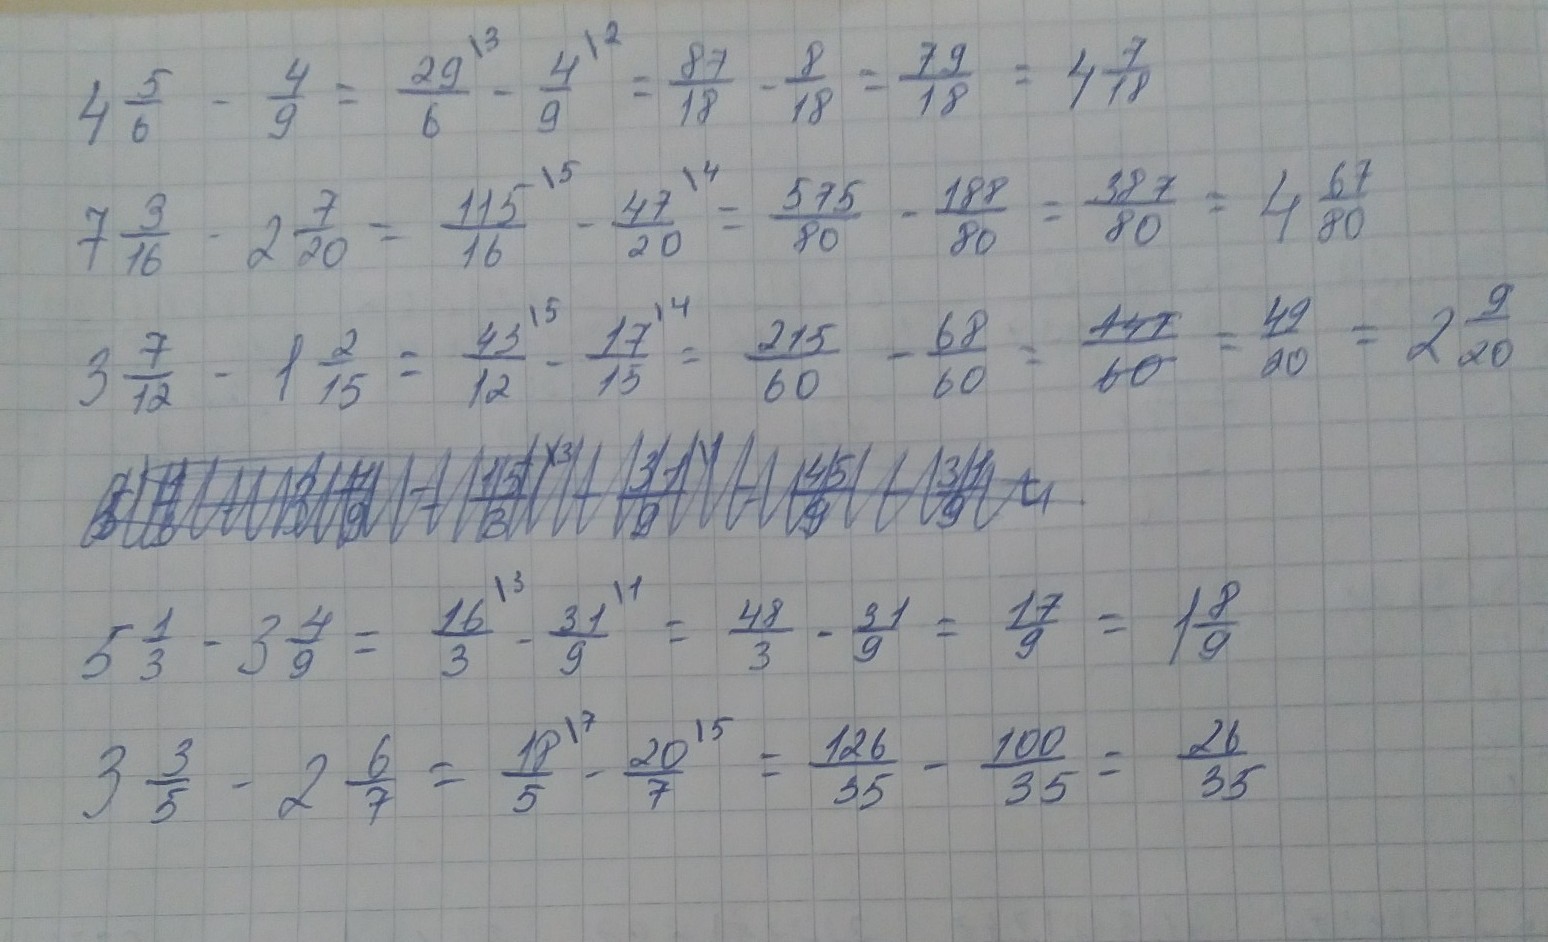 4 5/6 - 4/9 = 29/6 \3 - 4/9 \2 = 87/18 - 8/18 = 79/18 = 4 7/18
7 3/16 - 2 7/20 = 115/16 \5 - 47/20 \4 = 575/80 - 188/80 = 387/80 = 4 67/80
3 7/12 - 1 2/15 = 43/12 \5 - 17/15 \4 = 215/60 - 68/60 = 147/60 = 49/20 = 2 9/20
5 1/3 - 3 4/9 = 16/3 \3 - 31/9 \1 = 48/3 - 31/9 = 17/9 = 1 8/9
3 3/5 - 2 6/7 = 18/5 \7 - 20/7 \5 = 126/35 - 100/35 = 26/35